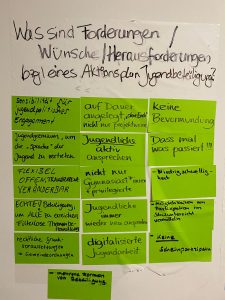 Was sind Forderungen
Wünsche/Herausforderungen
bzgl eines Aktionsplan Jugendbeteiligung?
Sensibilität für
jugendpolitisches
Engagement
Jugendgremium, um
die "Sprache" der
Jugend zu vertreten
FLEXIBEL
OFFEN, TRANSPARENT
VERÄNDERBAR
ECHTE Beteiligung,
um ALLE zu erreichen
rechtliche Grund-
voraussetzungen
→ Gemeindeordnungen
auf Dauer
angelegt,
nicht nur projektorientiert
Jugendliche
aktiv
ansprechen
nicht nur
Gymnasiast*innen
privilegierte
Jugendliche
immer
wieder neu ansprechen
digitalisierte
Jugendarbeit
keine
Bevormundung
Dass mal
was passiert !!!
- Niedrigschwellig-
keit
- Keine
Scheinpartizipation
- mehrere Formen
von Beteiligung